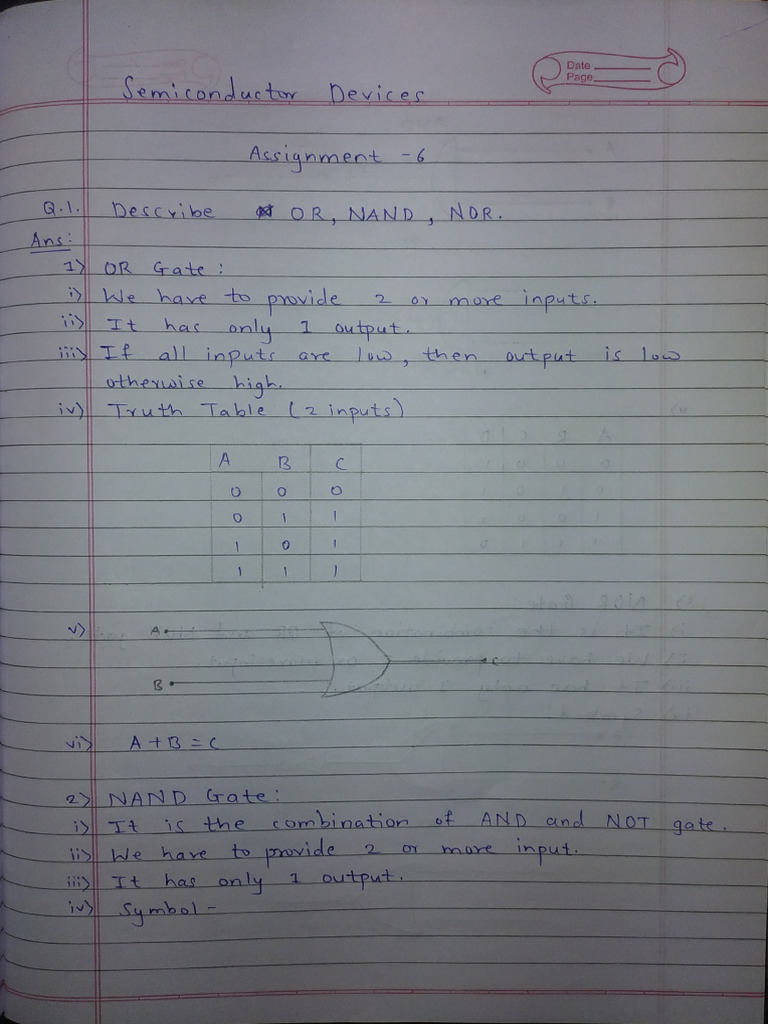 Date
Page
Semiconductor Devices
Assignment - 6
Q.1. Describe OR, NAND, NOR.
Ans:
1) OR Gate :
i) We have to provide 2 or more inputs.
ii) It has only 1 output.
iii) If all inputs are low, then output is low
otherwise high.
iv) Truth Table (2 inputs)
A B C
0 0 0
0 1 1
1 0 1
1 1 1
v) A
C
B
vi) A + B = C
2) NAND Gate :
i) It is the combination of AND and NOT gate.
ii) We have to provide 2 or more input.
iii) It has only 1 output.
iv) Symbol -